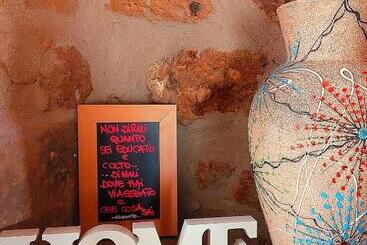 NON DIRMI
QUANTO
SEI EDUCATO
E
COLTO...
...DIMMI
DOVE HAI
VIAGGIATO
E
CHE COSA SAI
HOME